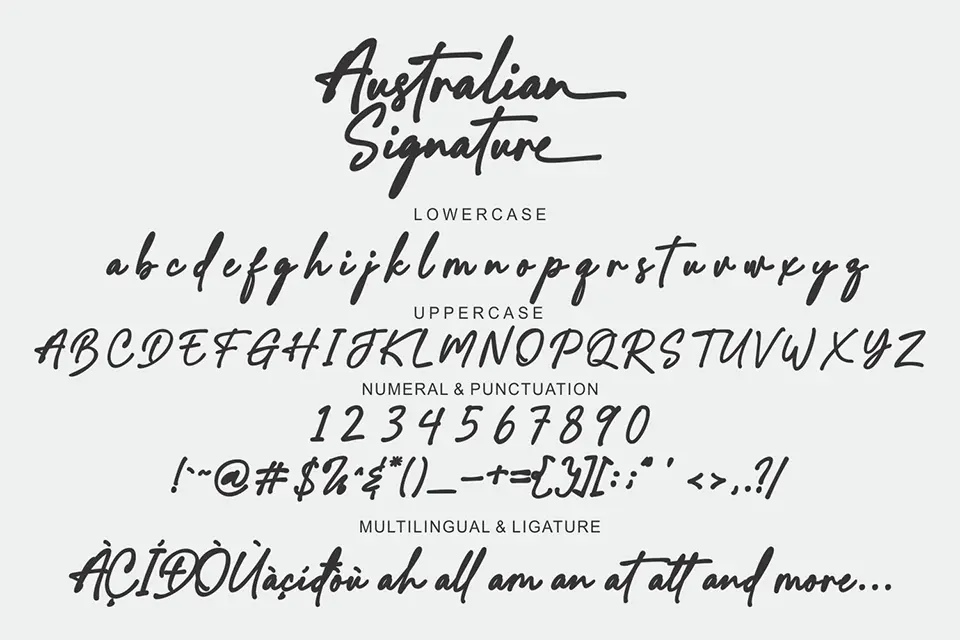 Australian
Signature
LOWERCASE
a b c d e f g h i j k l m n o p q r s t u v w x y z
UPPERCASE
A B C D E F G H I J K L M N O P Q R S T U V W X Y Z
NUMERAL & PUNCTUATION
1 2 3 4 5 6 7 8 9 0
!`~@#$%^&*()_-+={}][:;"' <>,.?/
MULTILINGUAL & LIGATURE
ÀÇÍÐÒÙàçíđòù ah all am an at att and more...